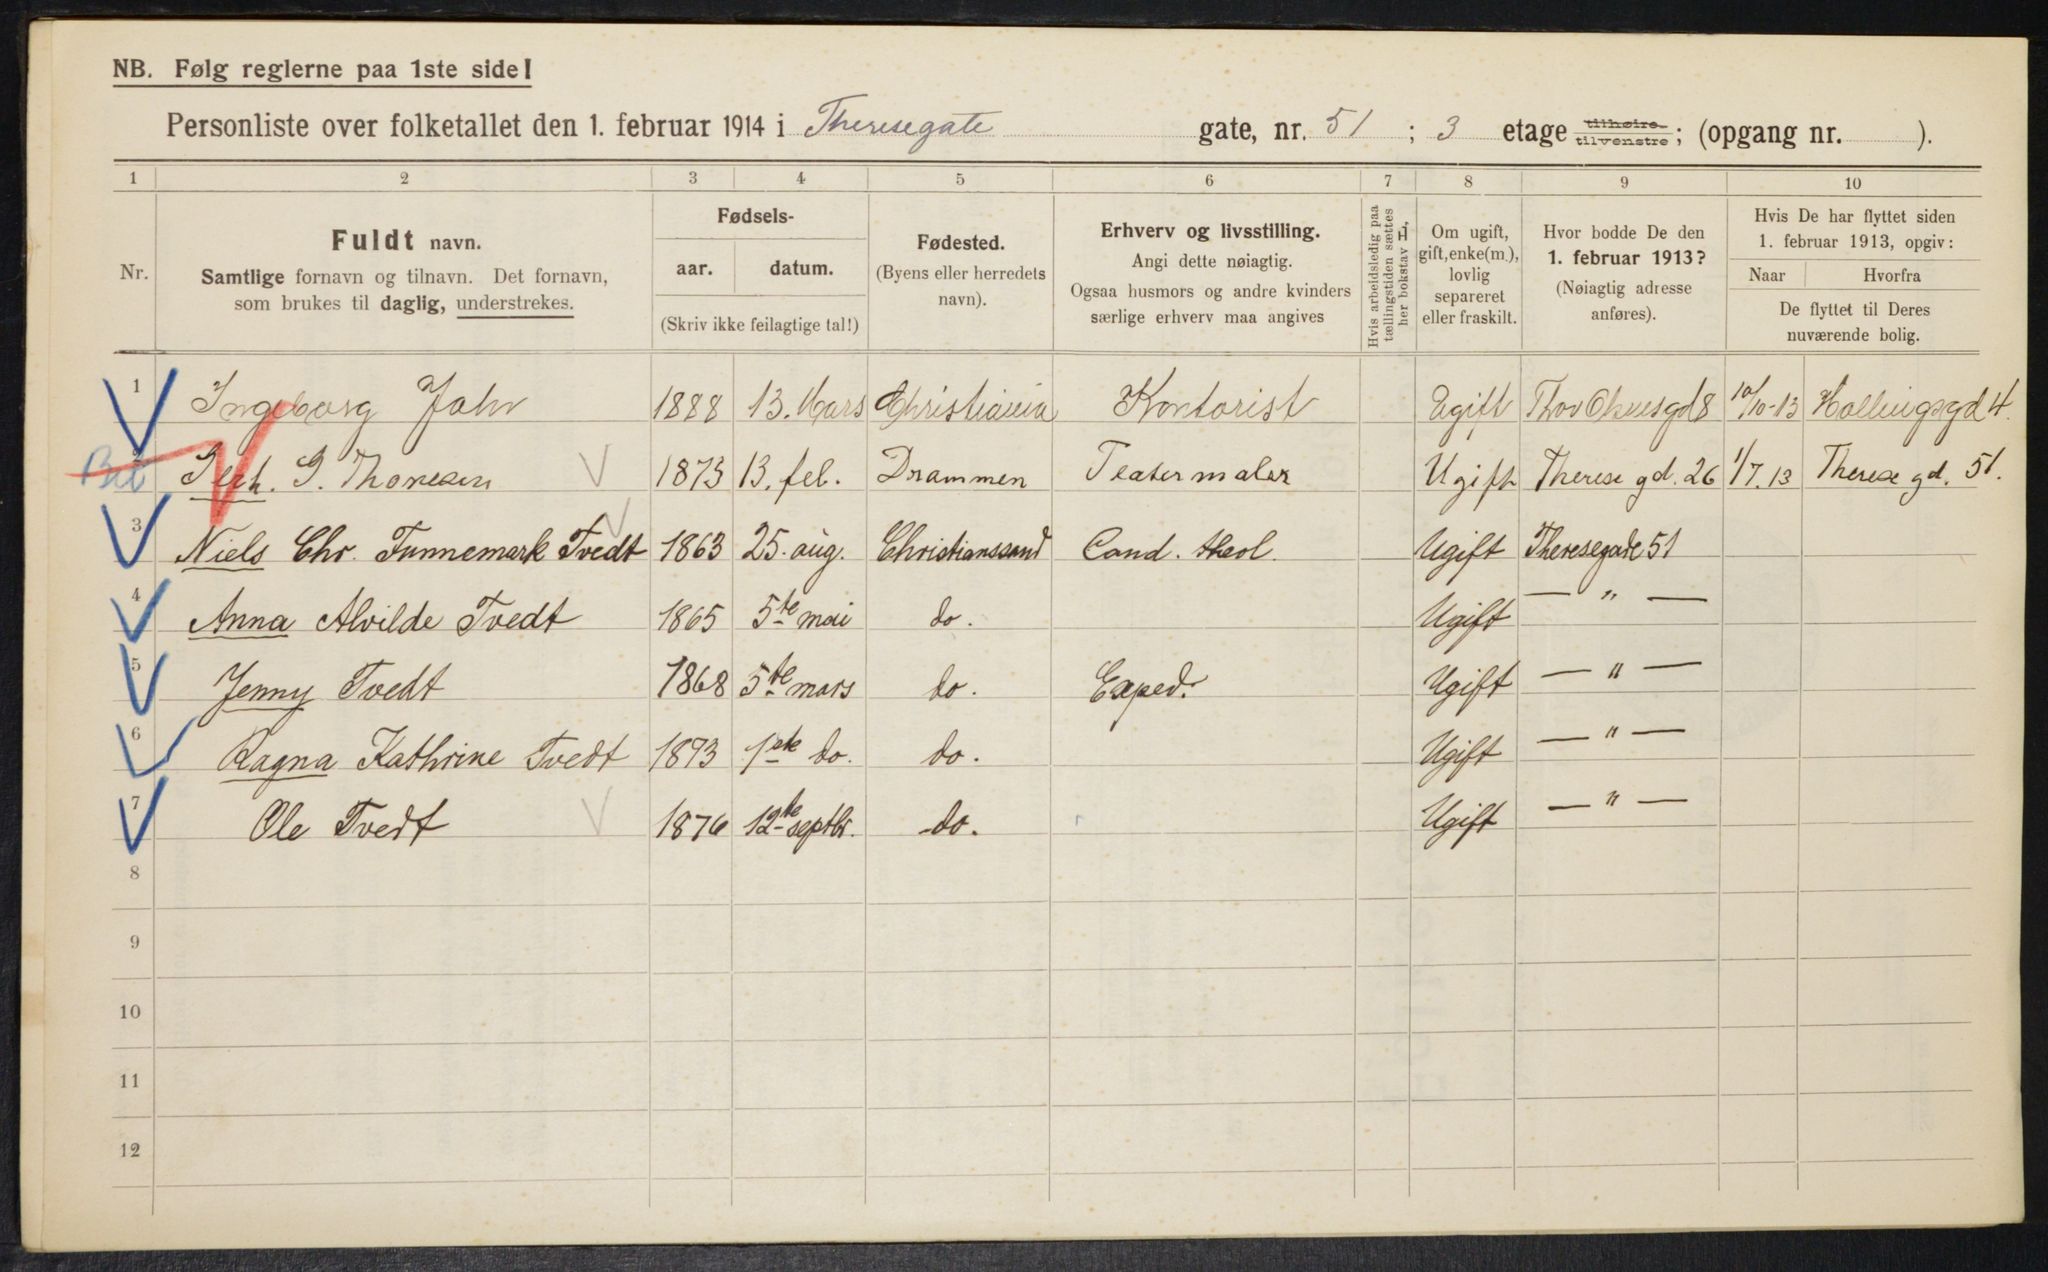 NB. Følg reglerne paa 1ste side!
Personliste over folketallet den 1. februar 1914 i Theresegate gate, nr. 51 ; 3 etage tilhøire tilvenstre; (opgang nr. ).
1 2 3 4 5 6 7 8 9 10
Nr.
Fuldt navn.
Samtlige fornavn og tilnavn. Det fornavn,
som brukes til daglig, understrekes.
Fødsels-
aar. datum.
(Skriv ikke feilagtige tal!)
Fødested.
(Byens eller herredets
navn).
Erhverv og livsstilling.
Angi dette nøiagtig.
Ogsaa husmors og andre kvinders
særlige erhverv maa angives
Hvis arbeidsledig paa
tællingstiden sættes
her bokstav L,
Om ugift,
gift, enke(m.),
lovlig
separeret
eller fraskilt.
Hvor bodde De den
1. februar 1913?
(Nøiagtig adresse
anføres).
Hvis De har flyttet siden
1. februar 1913, opgiv:
Naar Hvorfra
De flyttet til Deres
nuværende bolig.
1 Ingeborg Jahr 1888 13. Mars Christiania Kontorist Ugift Thov 8 10/10-13 4.
2 G. Thoresen 1873 13. feb. Drammen Teatermaler Ugift Therese gd. 26 1/7.13 Therese gd. 51.
3 Niels Chr. Tunnemark Tvedt 1863 25. aug. Christianssand Cand. theol. Ugift Theresegade 51
4 Anna Alvilde Tvedt 1865 5te mai do. Ugift — " —
5 Jenny Tvedt 1868 5te mars do. Exped. Ugift — " —
6 Ragna Kathrine Tvedt 1873 1ste do. do. Ugift — " —
7 Ole Tvedt 1876 12te septbr. do. Ugift — " —
8
9
10
11
12